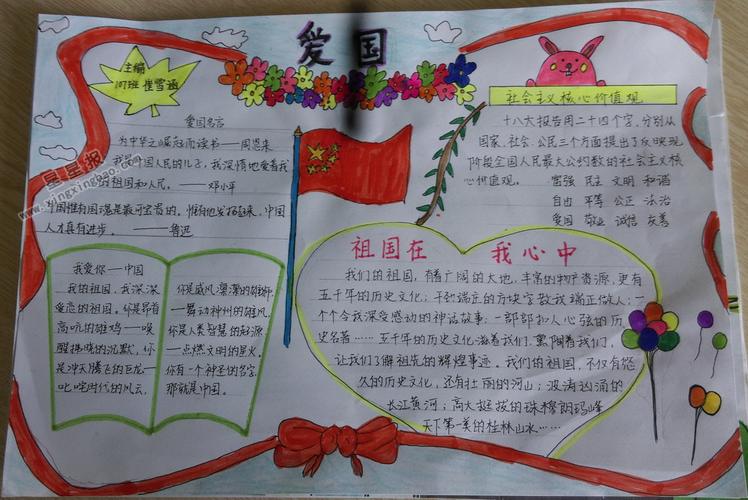 爱国
主编
107班 崔雪涵
爱国名言
为中华之崛起而读书——周恩来
我是中国人民的儿子,我深情地爱着我
的祖国和人民。——邓小平
中国惟有国魂是最可宝贵的。惟有他发扬起来,中国
人才真有进步。——鲁迅
星星报
www.xingxingbao.com
社会主义核心价值观
十八大报告用二十四个字,分别从
国家、社会、公民三个方面提出了反映现
阶段全国人民最大公约数的社会主义核
心价值观。 富强 民主 文明 和谐
自由 平等 公正 法治
爱国 敬业 诚信 友善
我爱你——中国
我的祖国,我深深
爱恋的祖国。你是昂首
高吭的雄鸡——唤
醒拂晓的沉默,你
是冲天腾飞的巨龙——
叱咤时代的风云,
你是威风凛凛的雄狮
——舞动神州的雄风,
你是人类智慧的起源
——点燃文明的星火。
你有一个神圣的名字,
那就是中国。
祖国在 我心中
我们的祖国,有着广阔的大地,丰富的物产资源,更有
五千年的历史文化;一个个端正的方块字教我端正做人;一
个个令我深受感动的神话故事;一部部扣人心弦的历
史名著……五千年的历史文化滋养着我们,熏陶着我们,
让我们了解祖先的辉煌事迹。我们的祖国,不仅有悠
久的历史文化,还有壮丽的河山;波涛汹涌的
长江黄河;高大挺拔的珠穆朗玛峰
天下第一美的桂林山水……